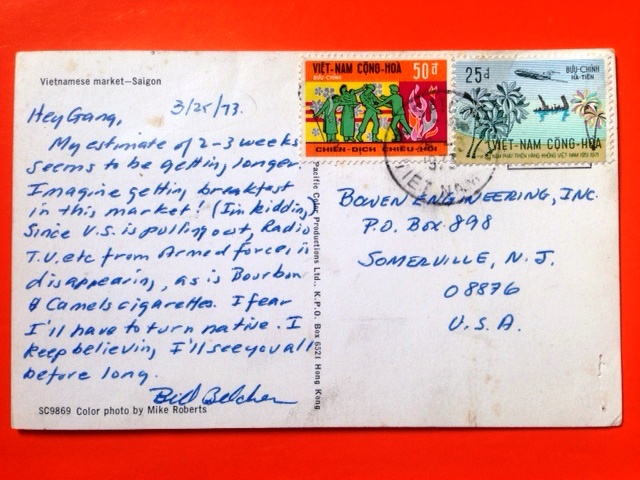 Vietnamese market—Saigon
Hey Gang, 3/25/73.
My estimate of 2-3 weeks
seems to be getting longer.
Imagine getting breakfast
in this market! (I'm kidding)
Since U.S. is pulling out, Radio
T.V. etc from Armed forces is
disappearing, as is Bourbon
& Camels cigarettes. I fear
I'll have to turn native. I
keep believing I'll see you all
before long.
Bill Belcher
SC9869 Color photo by Mike Roberts
Pacific Color Productions Ltd., K.P.O. Box 6521 Hong Kong
VIỆT-NAM CỘNG-HÒA 50đ
BƯU-CHÍNH
CHIẾN-DỊCH CHIÊU-HỒI
25đ BƯU-CHÍNH
HÀ-TIÊN
VIỆT-NAM CỘNG-HÒA
VIET NAM
BOWEN ENGINEERING, INC.
P.O. BOX 898
SOMERVILLE, N.J.
08876
U.S.A.